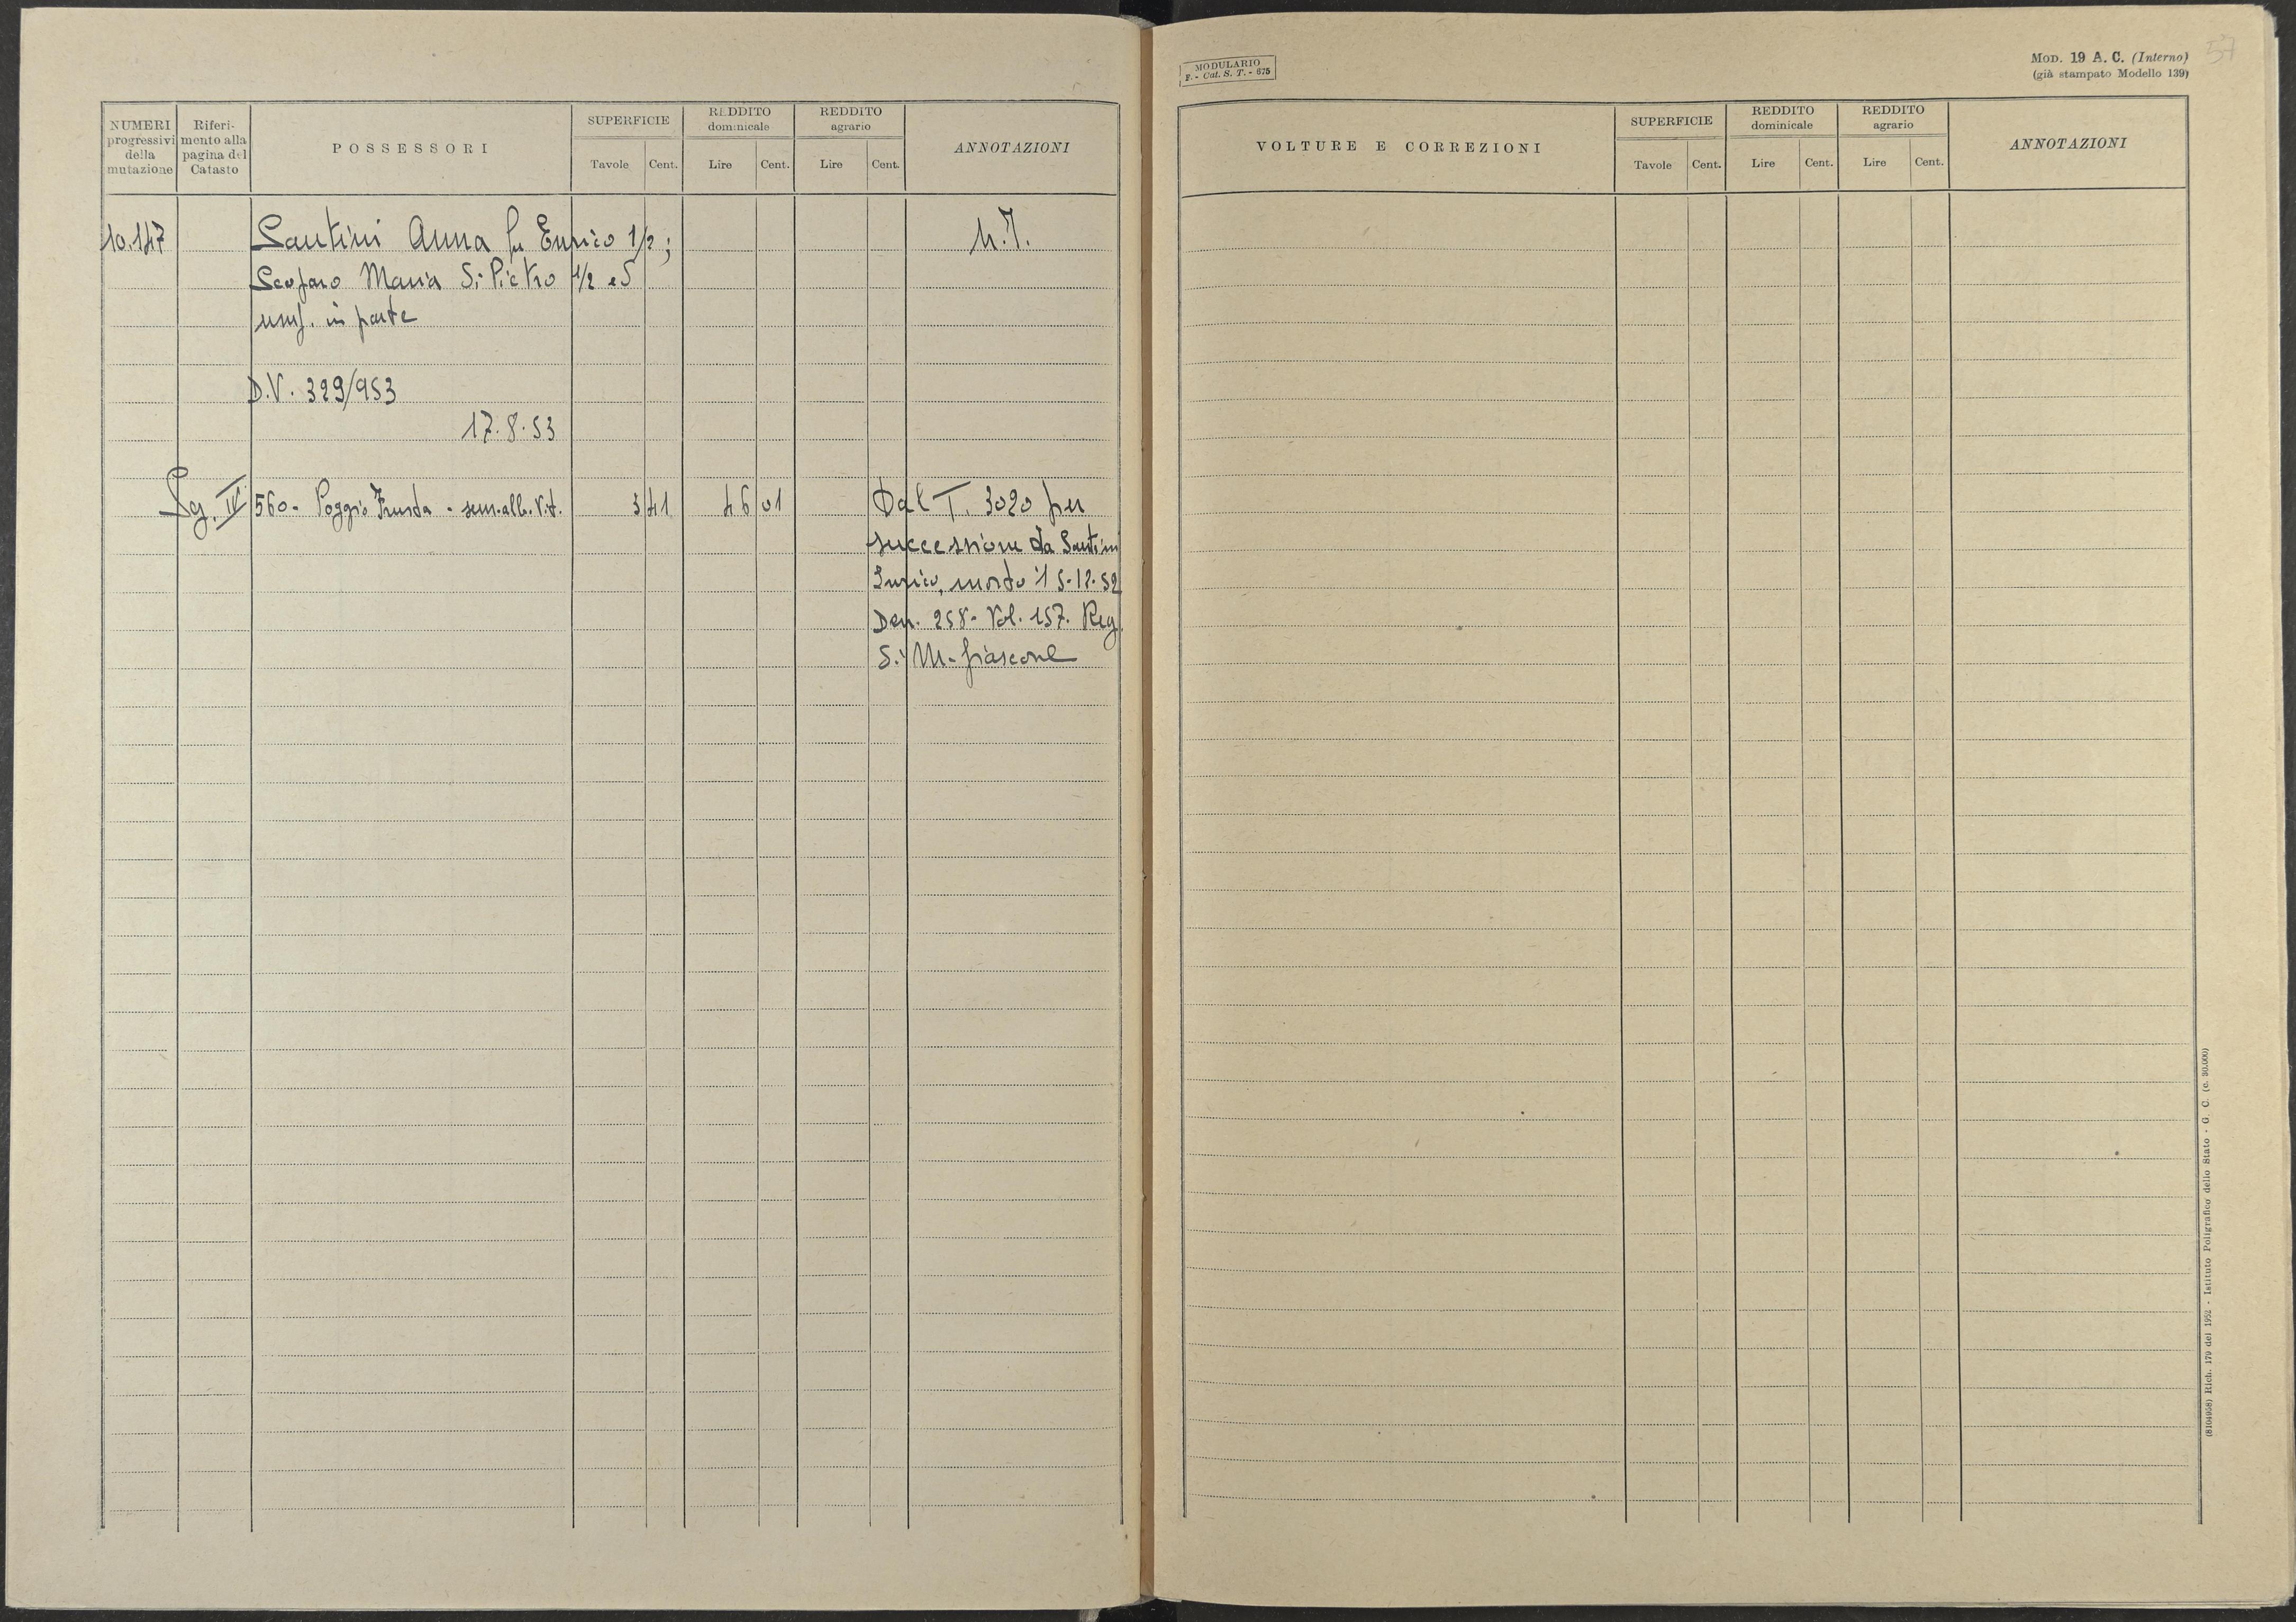 NUMERI progressivi della mutazione
Riferimento alla pagina del Catasto
POSSESSORI
SUPERFICIE
Tavole Cent.
REDDITO dominicale
Lire Cent.
REDDITO agrario
Lire Cent.
ANNOTAZIONI
10.147 Santini Anna fu Enrico 1/2; N.I.
Scoparo Maria di Pietro 1/2 ed
usuf. in parte
D.V. 329/953
17.8.53
Sg. IV 560- Poggio - sem. alb. vit. 3 41 46 01 Dal T. 3020 per
successione da Santini
Enrico, morto il 5-12-52
Den. 258- Vol. 157. Reg.
di M-fiascone
MODULARIO
F. - Cat. S. T. - 675
MOD. 19 A. C. (Interno)
(già stampato Modello 139)
57
VOLTURE E CORREZIONI
SUPERFICIE
Tavole Cent.
REDDITO dominicale
Lire Cent.
REDDITO agrario
Lire Cent.
ANNOTAZIONI
(8104958) Rich. 179 del 1952 - Istituto Poligrafico dello Stato - G. C. (c. 30.000)